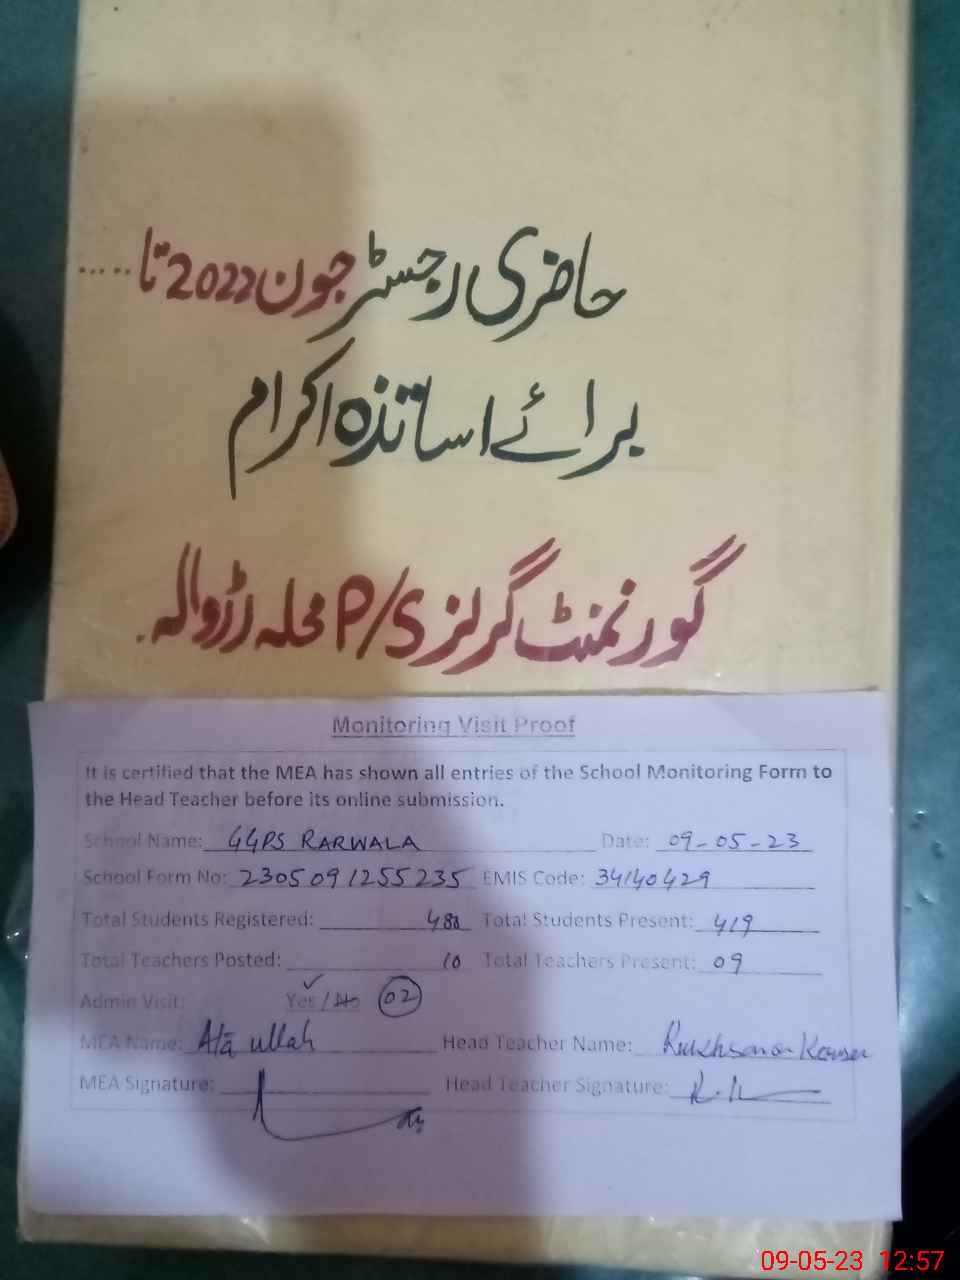 حاضری رجسٹر جون 2022 تا .....
برائے اساتذہ اکرام
گورنمنٹ گرلز P/S محلہ رڑوالہ.
Monitoring Visit Proof
It is certified that the MEA has shown all entries of the School Monitoring Form to
the Head Teacher before its online submission.
School Name: GGPS RARWALA Date: 09-05-23
School Form No: 2305091255235 EMIS Code: 34140429
Total Students Registered: 488 Total Students Present: 419
Total Teachers Posted: 10 Total Teachers Present: 09
Admin Visit: Yes / No 02
MEA Name: Ata ullah Head Teacher Name: Rukhsana Kousar
MEA Signature: Head Teacher Signature: R.K
09-05-23 12:57